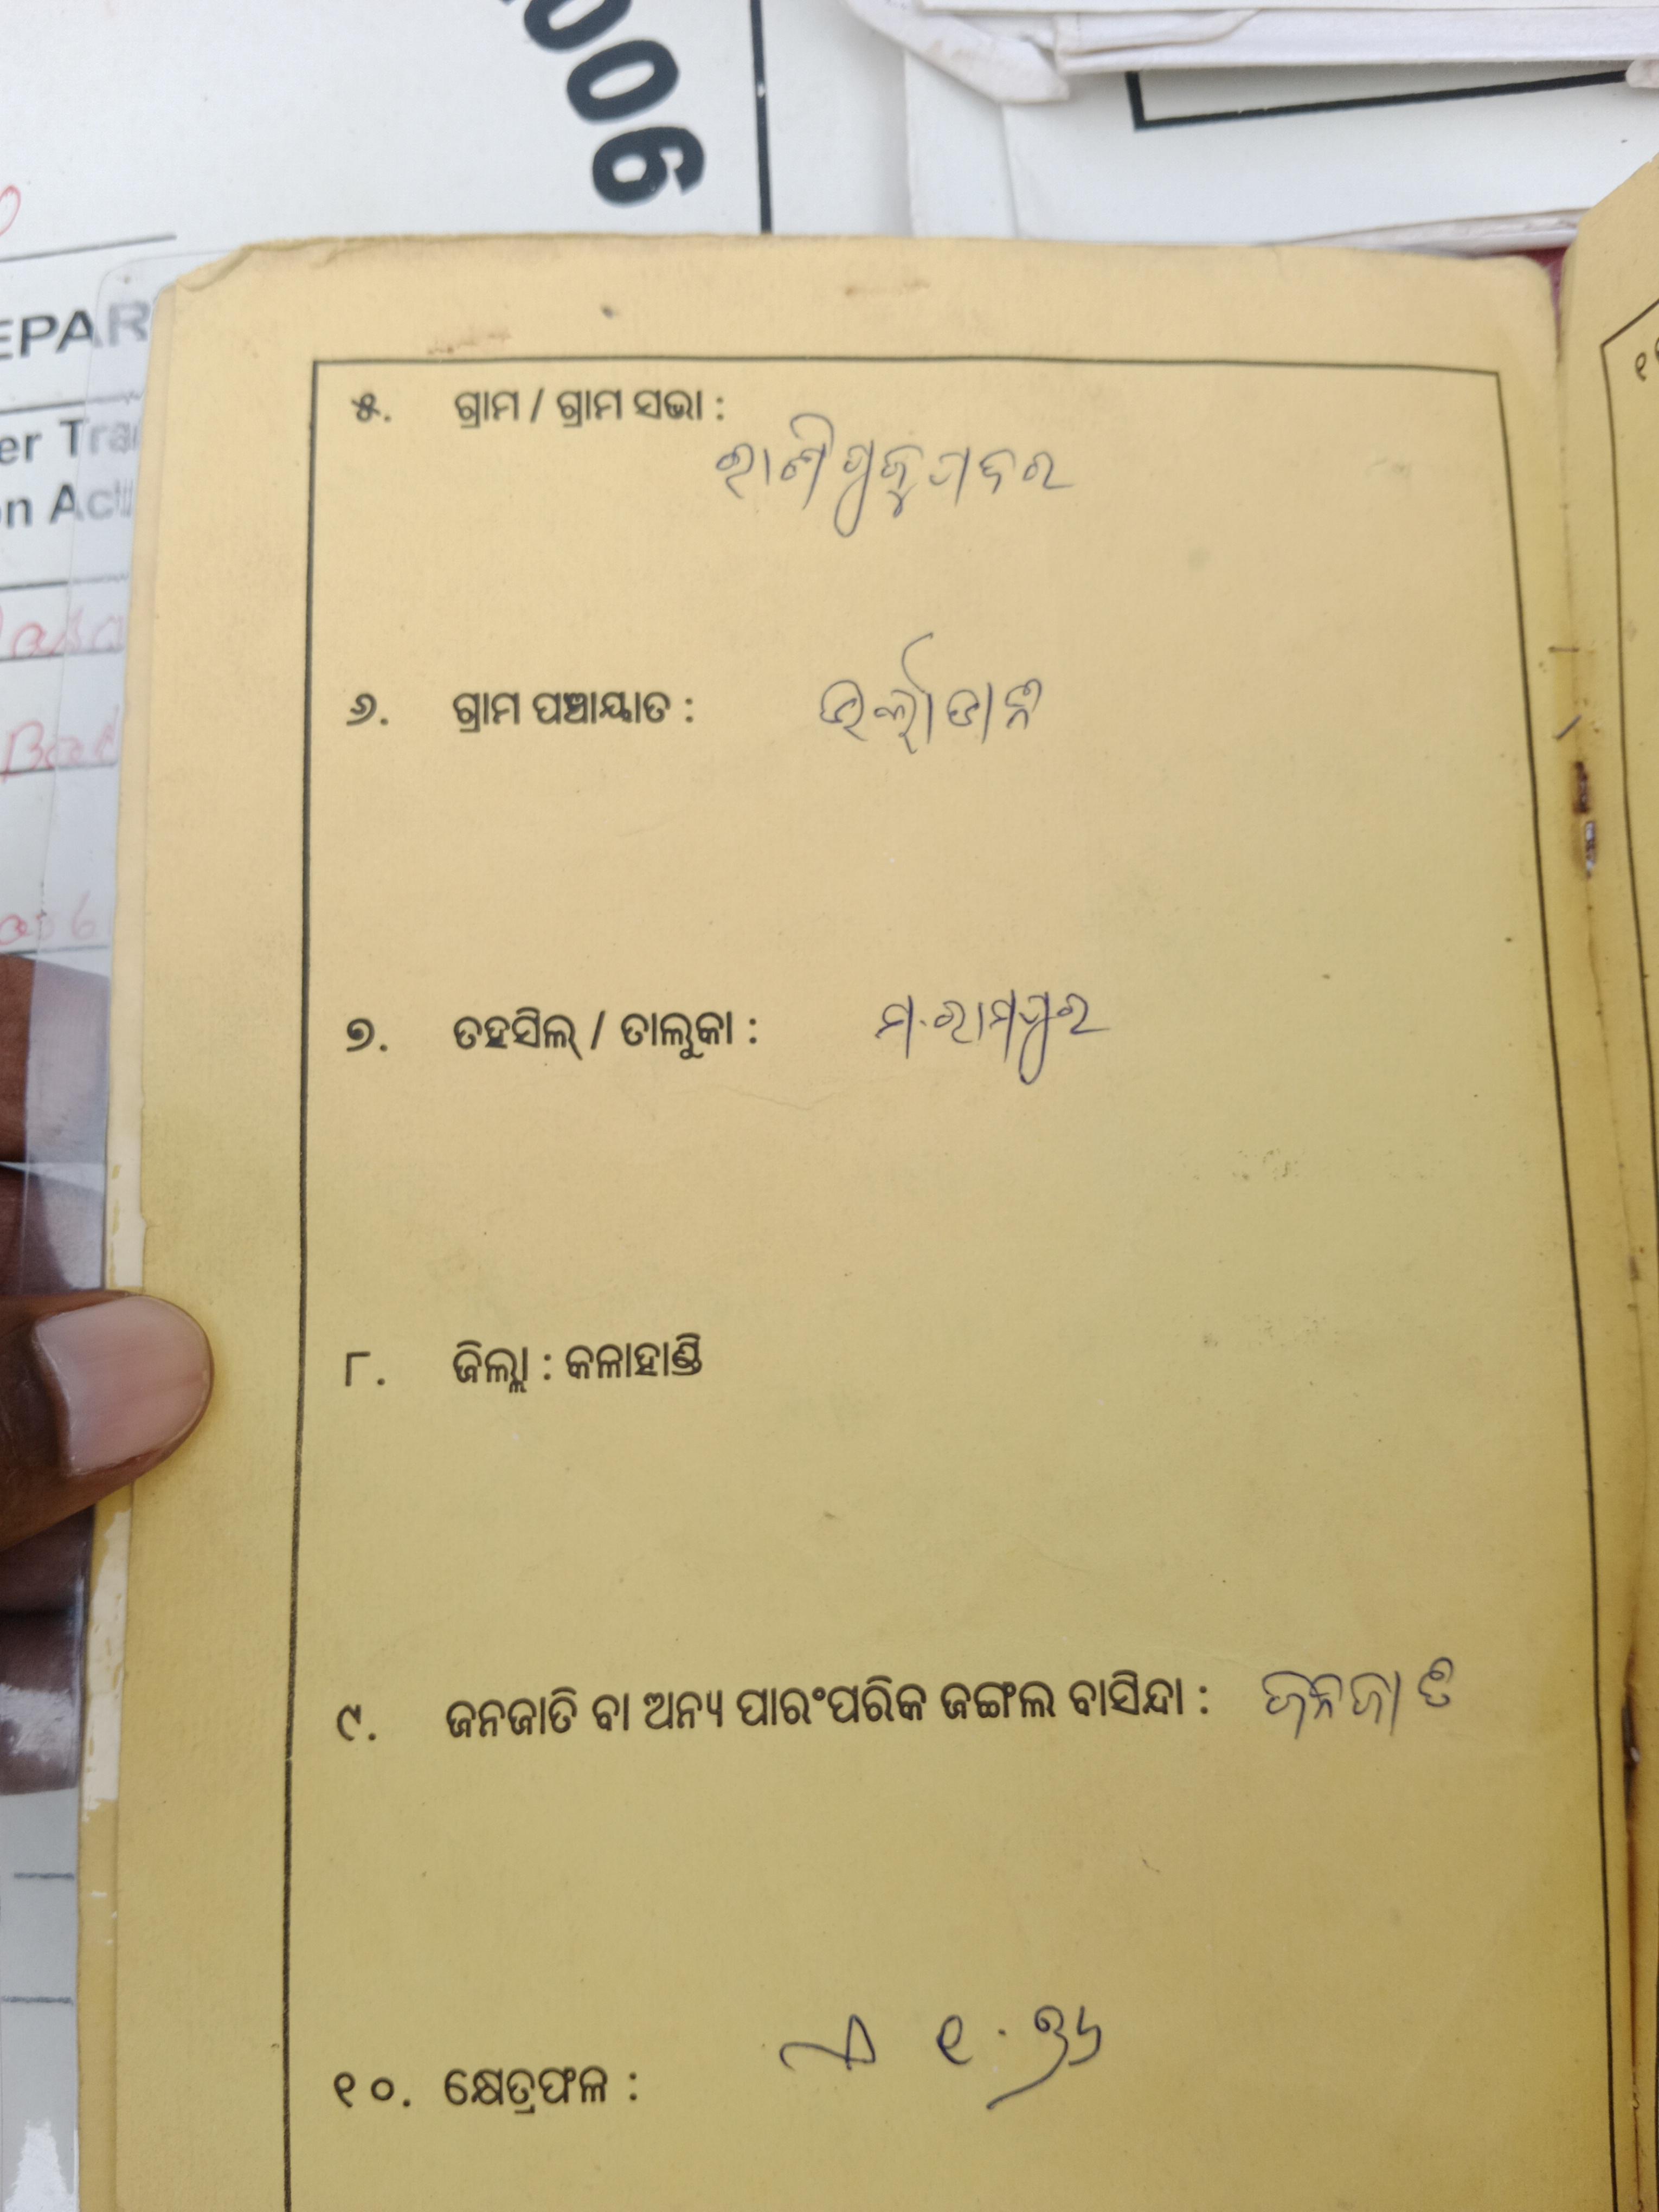 006
EPAR
er Tra
on Act
୫. ଗ୍ରାମ / ଗ୍ରାମ ସଭା :
୬. ଗ୍ରାମ ପଞ୍ଚାୟାତ :
୭. ତହସିଲ୍ / ତାଲୁକା : ମ.ରାମପୁର
୮. ଜିଲ୍ଲା : କଳାହାଣ୍ଡି
୯. ଜନଜାତି ବା ଅନ୍ୟ ପାରଂପରିକ ଜଙ୍ଗଲ ବାସିନ୍ଦା : ଜନଜାତି
୧୦. କ୍ଷେତ୍ରଫଳ : ଏ ୧.୩୬